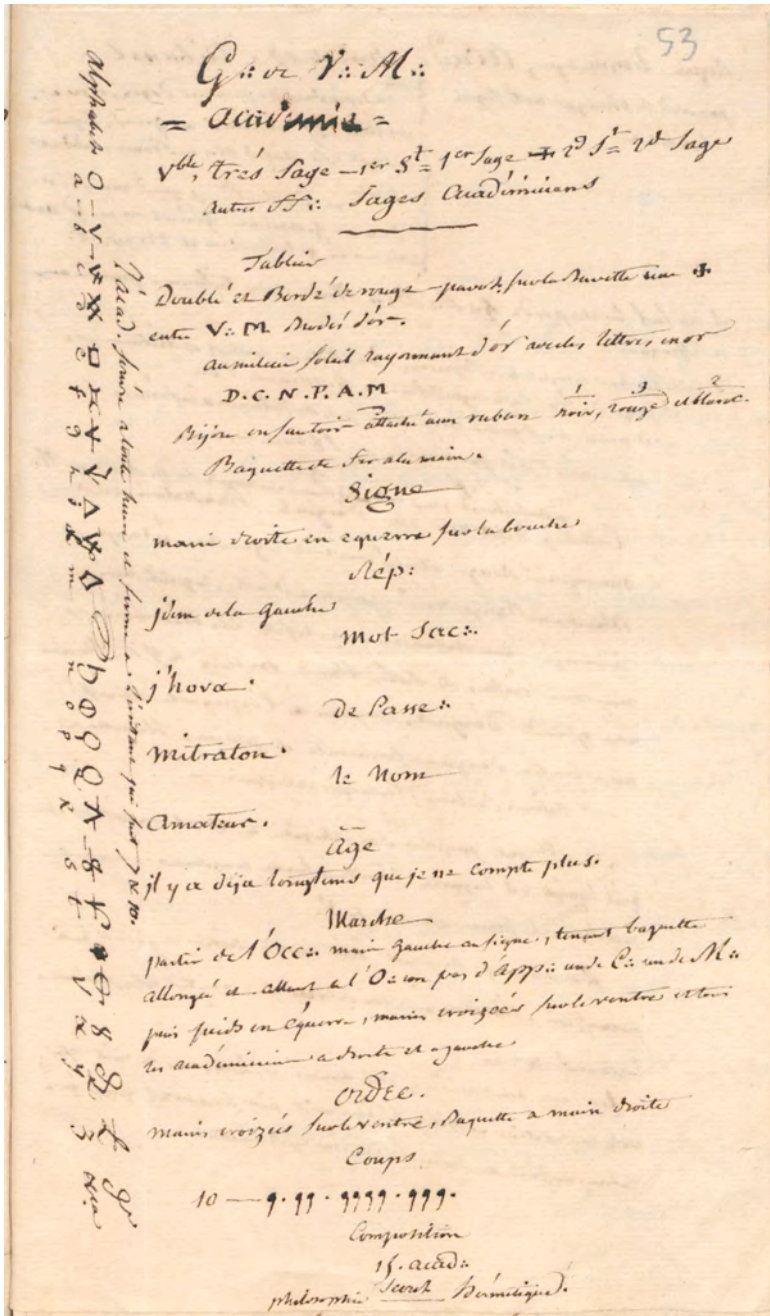 53
G∴ de V∴ M∴
= Académie =
Vble, trés Sage — 1er St = 1er Sage + 2d St = 2d Sage
autres FF∴ Sages Académiciens
Tablier
Doublé et Bordé de rouge — sur la Bavette une
entre V∴ M Brodés d'or.
au milieu Soleil rayonnant d'or avec les lettres en or
D. C. N. P. A. M
Bijou en Sautoir attaché a un ruban noir, rouge et blanc.
1 3 2
Baguette de fer a la main.
Signe
main droite en equerre sur la bouche
Rép:
j'dem de la Gauche
Mot Sac∴
j'hova.
de Passe∴
mitraton.
le Nom
Amateur.
Age
il y a deja longtems que je ne compte plus.
Marche
partir de l'Occ∴ main gauche au signe, tenant baguette
allongée et allant a l'O∴ un pas d'App∴ un de C∴ un de M∴
puis pieds en Equerre, mains croizées sur le ventre et tous
les académiciens a droite et a gauche
Ordre.
mains croizées sur le ventre, Baguette a main droite
Coups
10 — 9. 99. 9999. 999.
Composition
15. acad∴
philosophie Secret hérmétique.
l'acad. s'ouvre a toute heure et ferme a l'instant qui suit
Alphabets
a b c d e f g h i l m n o p q r s t v x y z